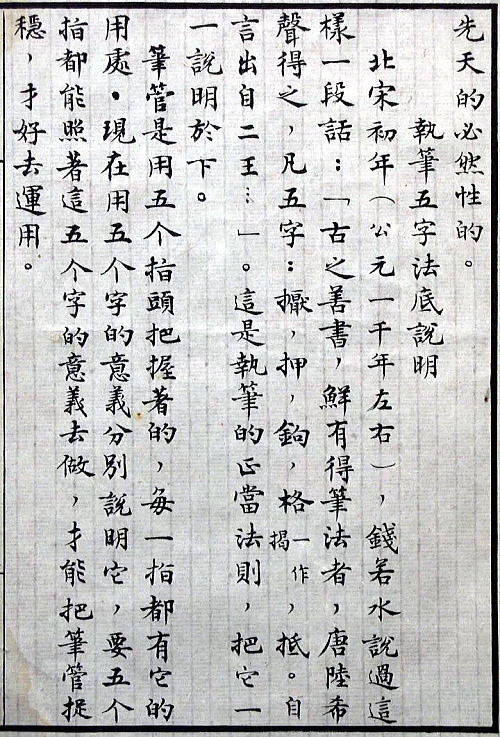 先天的必然性的。
執筆五字法底說明
北宋初年（公元一千年左右），錢若水說過這
樣一段話：「古之善書，鮮有得筆法者，唐陸希
聲得之，凡五字：擫，押，鉤，格一作揭，抵。自
言出自二王…」。這是執筆的正當法則，把它一
一說明於下。
筆管是用五个指頭把握著的，每一指都有它的
用處。現在用五个字的意義分別說明它，要五个
指都能照著這五个字的意義去做，才能把筆管捉
穩，才好去運用。